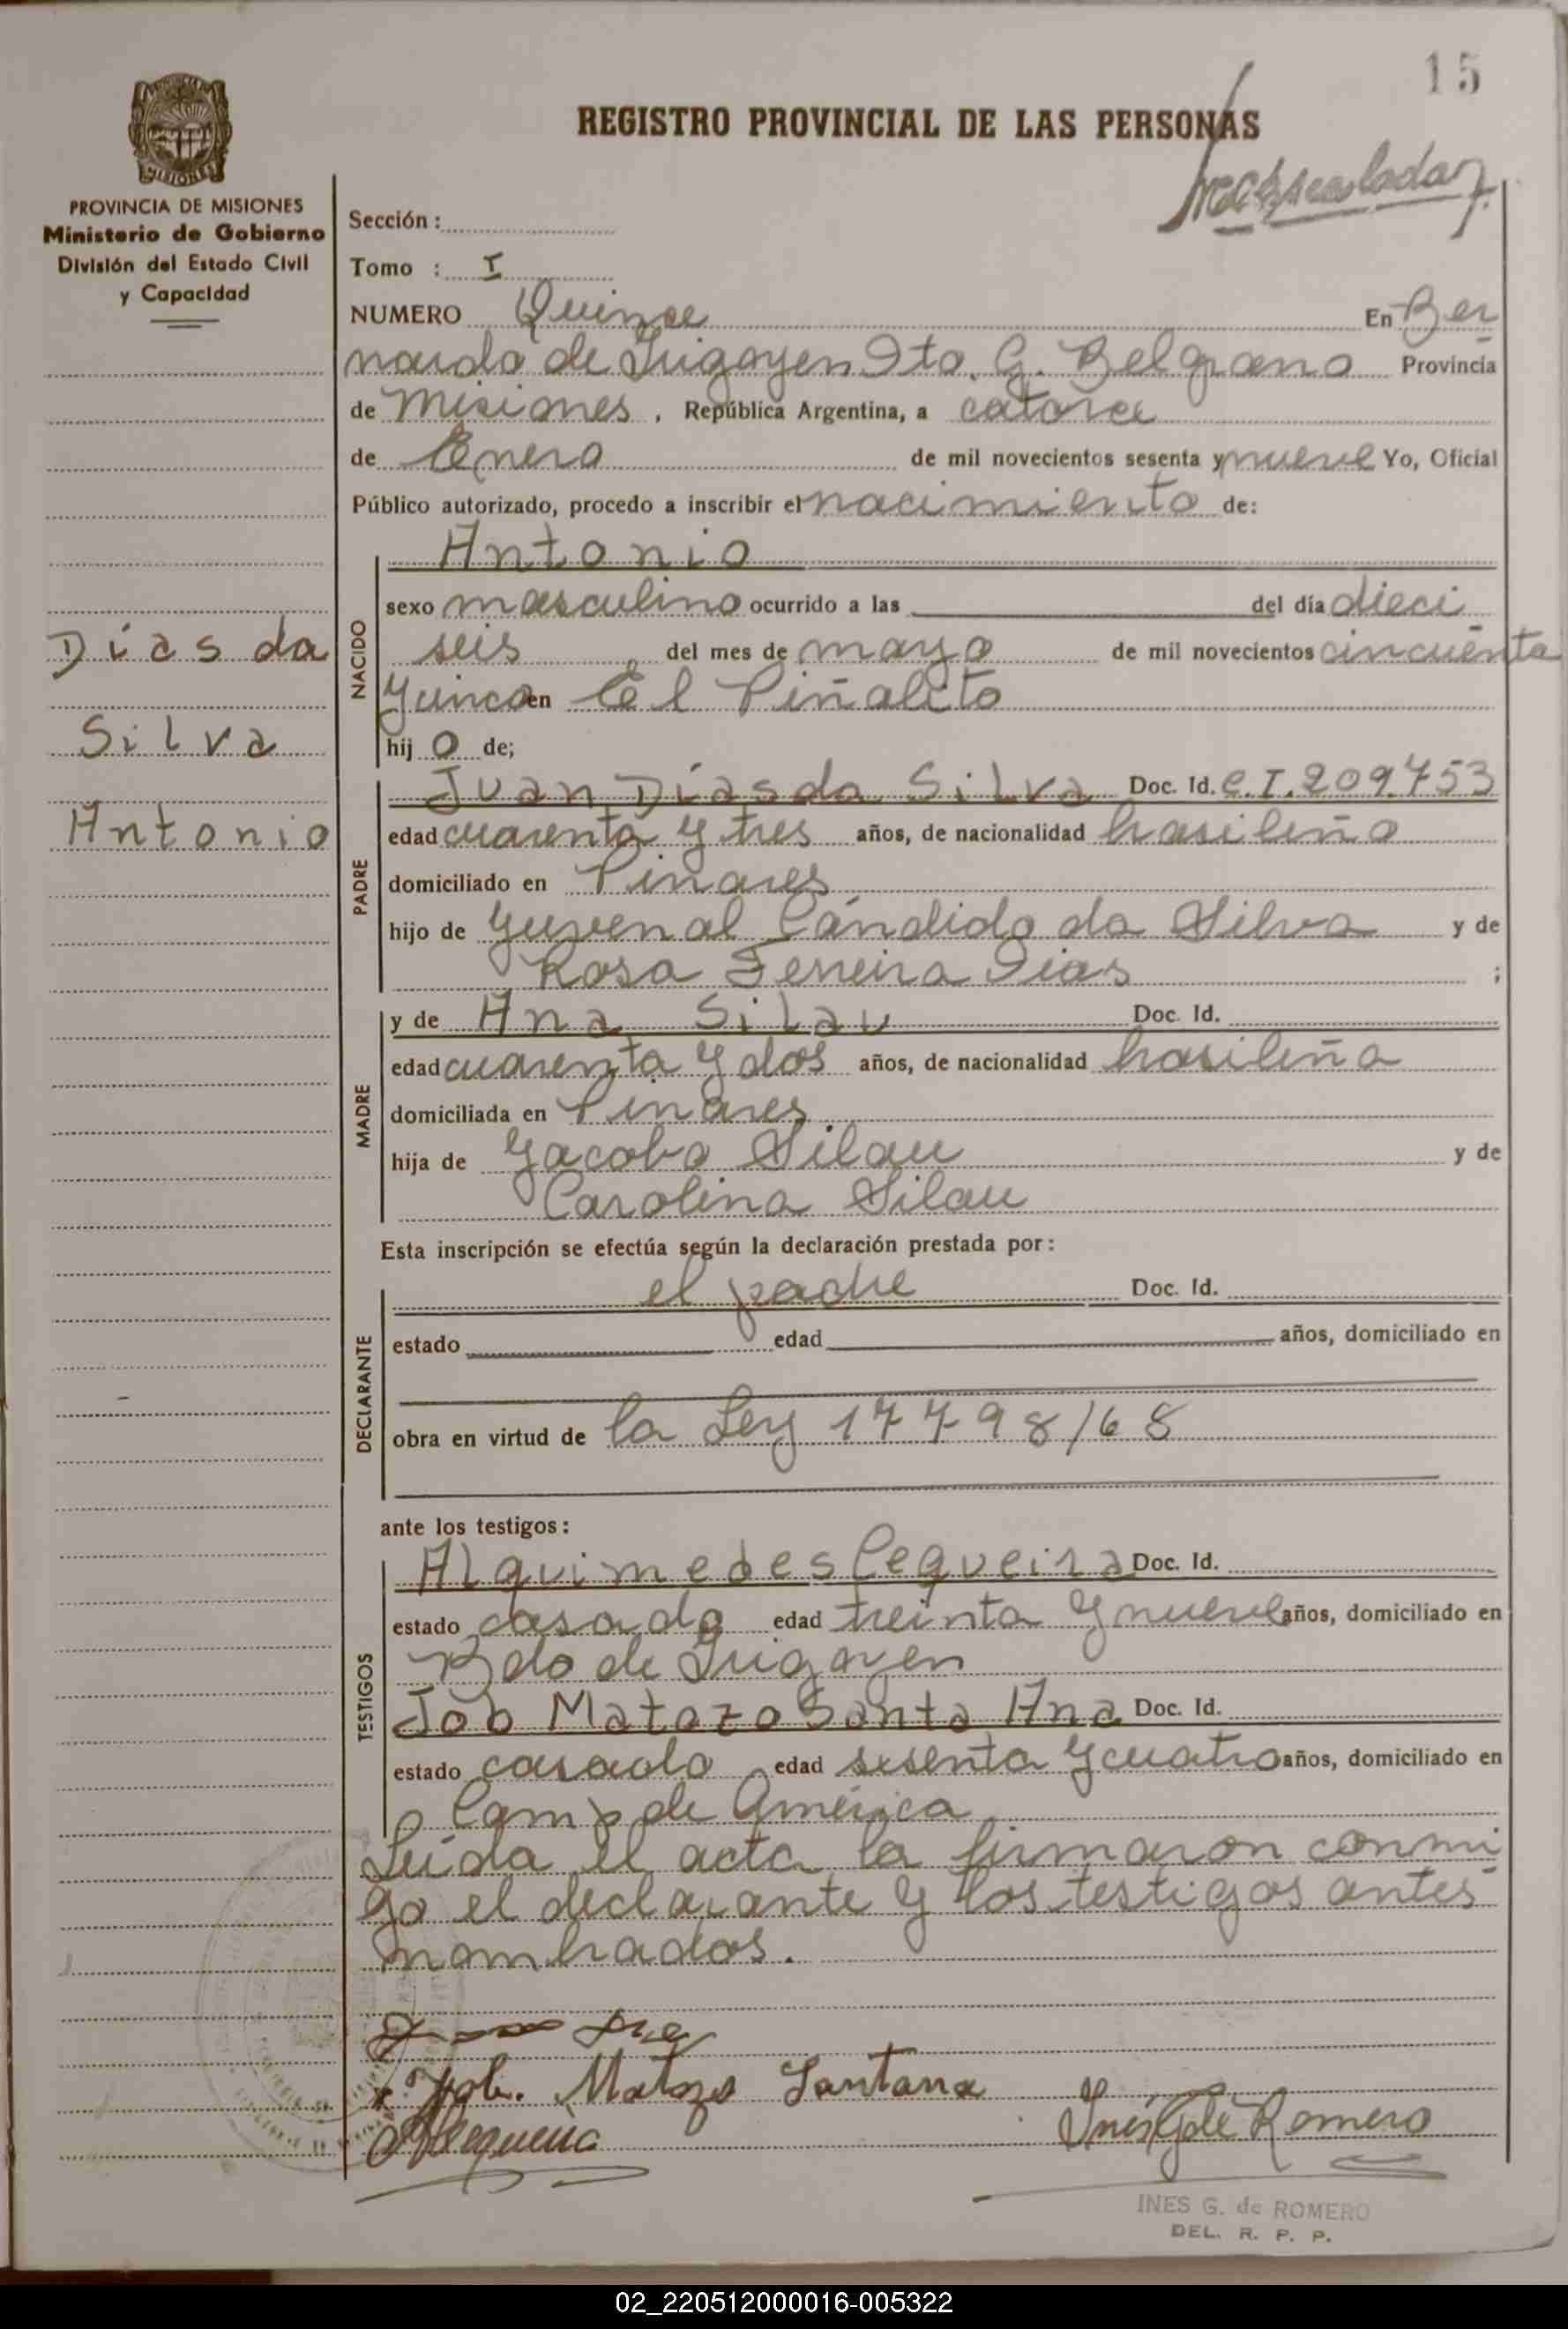 15
REGISTRO PROVINCIAL DE LAS PERSONAS
MISIONES
PROVINCIA DE MISIONES
Ministerio de Gobierno
División del Estado Civil
y Capacidad
Sección :
Tomo : I
NUMERO Quince En Ber
nardo de Irigoyen Dto. G. Belgrano Provincia
de Misiones, República Argentina, a catorce
de Enero de mil novecientos sesenta y nueve Yo, Oficial
Público autorizado, procedo a inscribir el nacimiento de:
Días da
Silva
Antonio
NACIDO
Antonio
sexo masculino ocurrido a las del día dieci
seis del mes de mayo de mil novecientos cincuenta
y cinco en El Piñalito
hij o de;
PADRE
Juan Días da Silva Doc. Id. C.I. 209.753
edad cuarenta y tres años, de nacionalidad brasileño
domiciliado en Pinares
hijo de Yuvenal Cándido da Silva y de
Rosa Ferreira Dias ;
MADRE
y de Ana Silau Doc. Id.
edad cuarenta y dos años, de nacionalidad brasileña
domiciliada en Pinares
hija de Yacobo Silau y de
Carolina Silau
Esta inscripción se efectúa según la declaración prestada por:
DECLARANTE
el padre Doc. Id.
estado edad años, domiciliado en
obra en virtud de la Ley 17798/68
ante los testigos:
TESTIGOS
Alquimedes Cequeira Doc. Id.
estado casado edad treinta y nueve años, domiciliado en
Bdo de Irigoyen
Job Matozo Santa Ana Doc. Id.
estado casado edad sesenta y cuatro años, domiciliado en
Camp de América
Leída el acta la firmaron conmi
go el declarante y los testigos antes
nombrados.
Job. Matozo Santana
Inés G de Romero
INES G. de ROMERO
DEL. R. P. P.
02_220512000016-005322